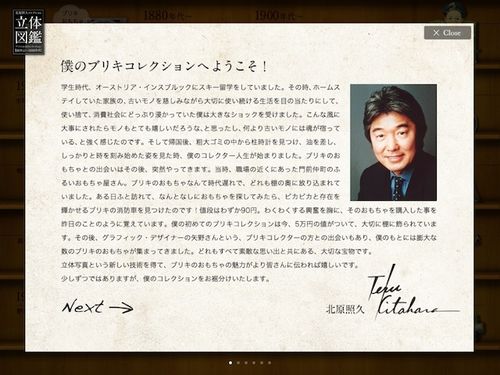 立体
図鑑
1880年代~
1900年代~
× Close
僕のブリキコレクションへようこそ！
学生時代、オーストリア・インスブルックにスキー留学をしていました。その時、ホームス
テイしていた家族の、古いモノを慈しみながら大切に使い続ける生活を目の当たりにして、
使い捨て、消費社会にどっぷり浸かっていた僕は大きなショックを受けました。こんな風に
大事にされたらモノもとても嬉しいだろうな、と思ったし、何より古いモノには魂が宿って
いる、と強く感じたのです。そして帰国後、粗大ゴミの中から柱時計を見つけ、油を差し、
しっかりと時を刻み始めた姿を見た時、僕のコレクター人生が始まりました。ブリキのおも
ちゃとの出会いはその後、突然やってきます。当時、職場の近くにあった門前仲町のふ
るいおもちゃ屋さん。ブリキのおもちゃなんて時代遅れで、どれも棚の奥に放り込まれて
いました。ある日ふと訪れて、なんとなしにおもちゃを探してみたら、ピカピカと存在を
輝かせるブリキの消防車を見つけたのです！値段はわずか90円。わくわくする興奮を胸に、そのおもちゃを購入した事を
昨日のことのように覚えています。僕の初めてのブリキコレクションは今、5万円の値がついて、大切に棚に飾られていま
す。その後、グラフィック・デザイナーの矢野さんという、ブリキコレクターの方との出会いもあり、僕のもとには膨大な
数のブリキのおもちゃが集まってきました。どれもすべて素敵な思い出と共にある、大切な宝物です。
立体写真という新しい技術を得て、ブリキのおもちゃの魅力がより皆さんに伝われば嬉しいです。
少しずつではありますが、僕のコレクションをお裾分けいたします。
Next →
北原照久
Teru
Kitahara